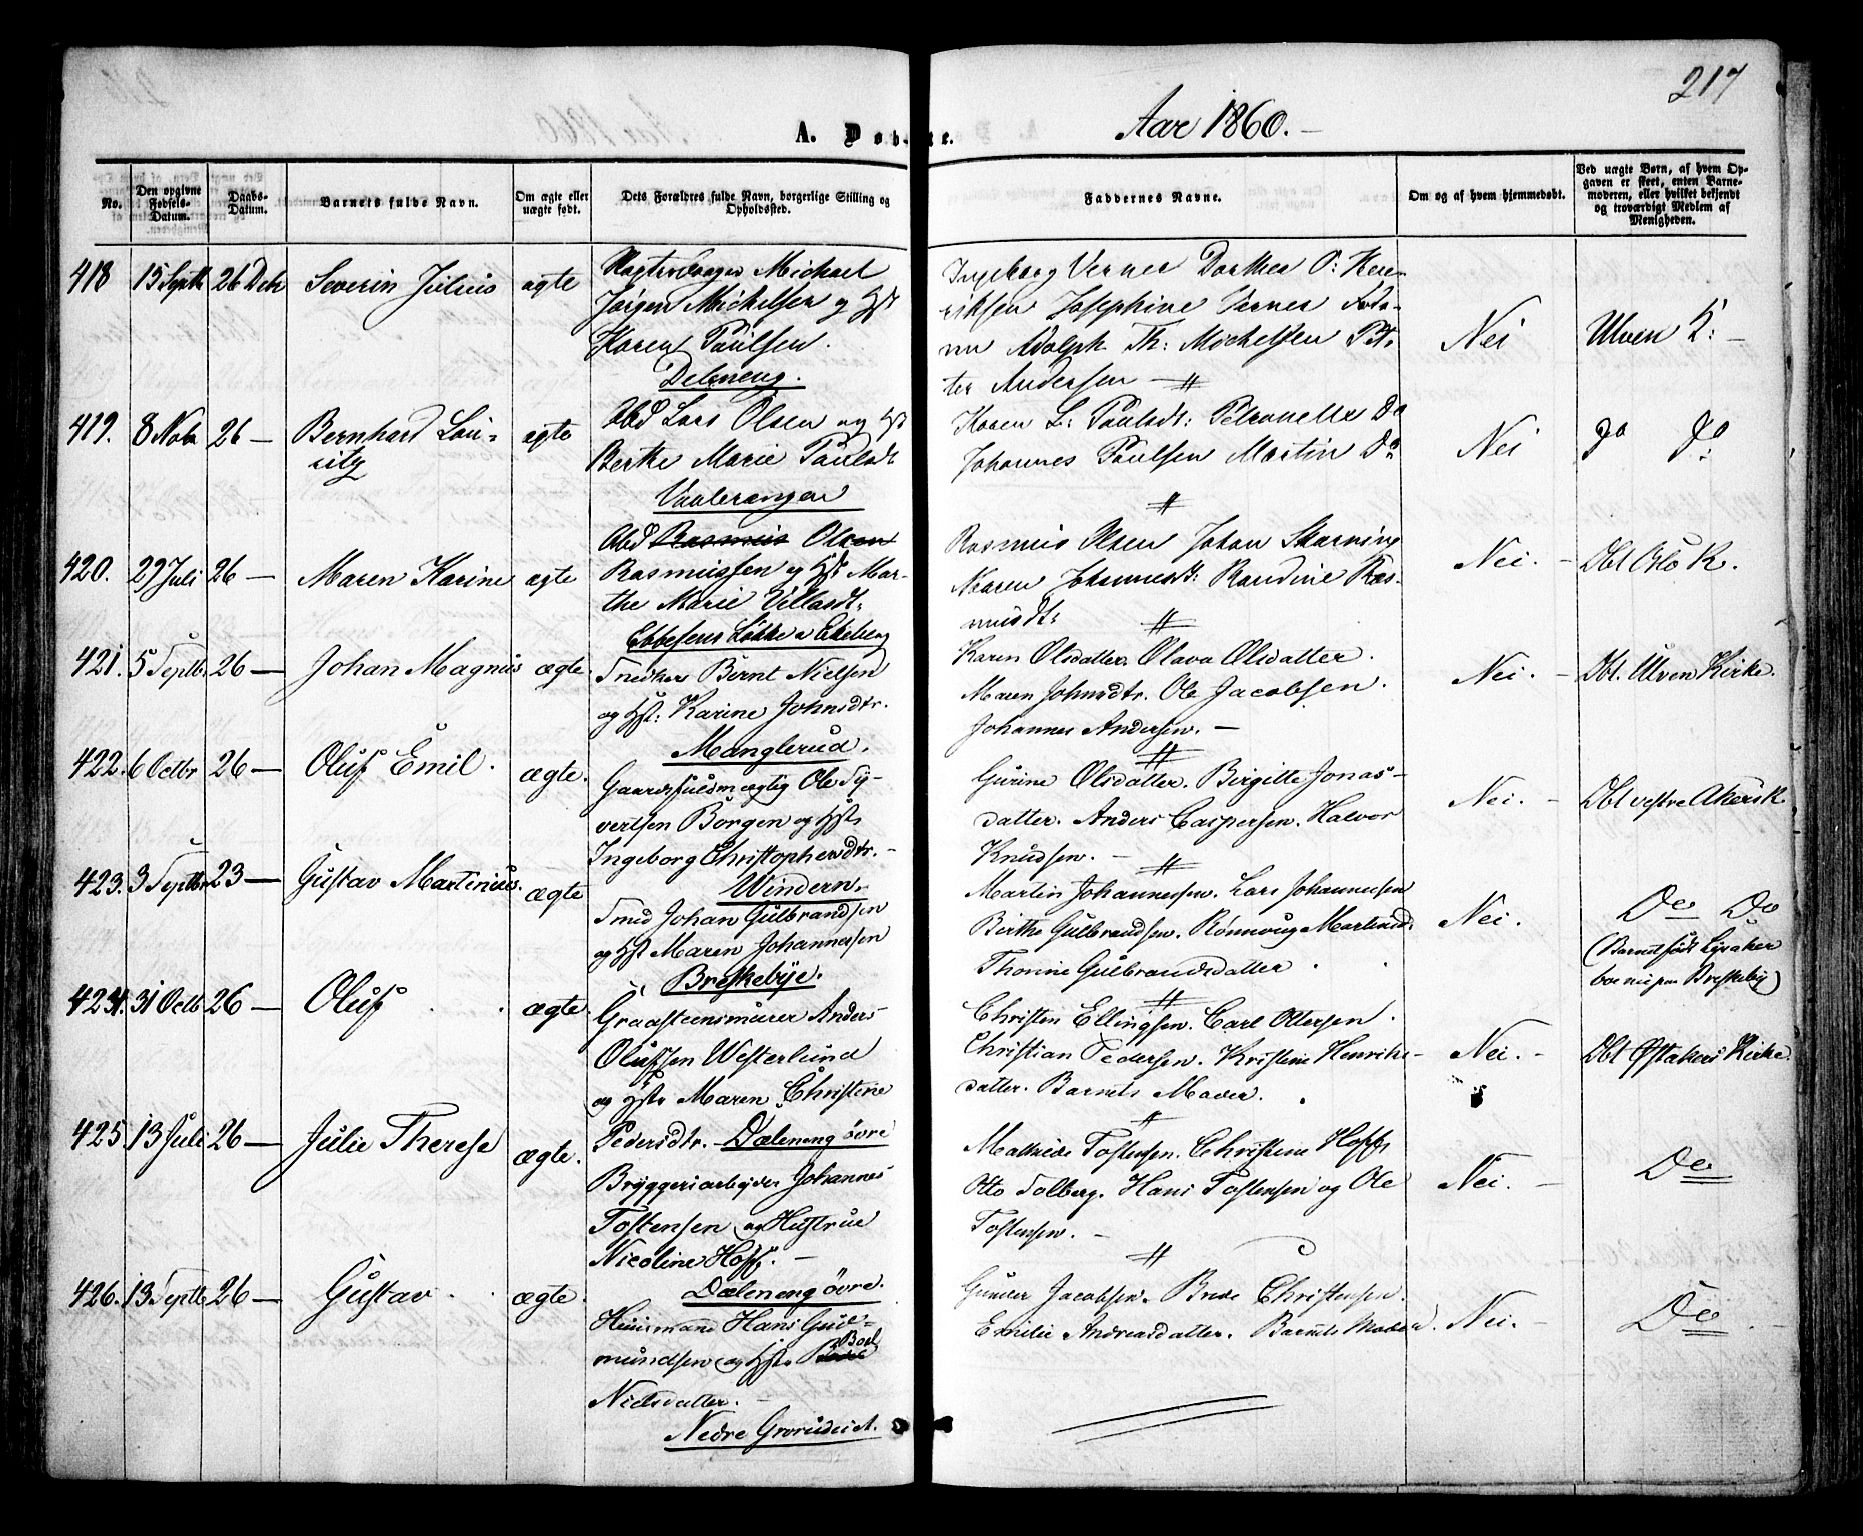 217
Aar 1860.
A. Døbte.
No.
Den opgivne Fødsels-Datum.
Daabs-Datum.
Barnets fulde Navn.
Om ægte eller uægte født.
Dets Forældres fulde Navn, borgerlige Stilling og Opholdssted.
Faddernes Navne.
Om og af hvem hjemmedøbt.
Ved uægte Børn, af hvem Opgaven er skeet, enten Barnemoderen, eller hvilket bekjendt og troværdigt Medlem af Menigheden.
418 15 Septb 26 Debr Severin Julius ægte
Michael
Jørgen Michelsen og Hst
Karen Paulsen.
Deleneng.
Ingeborg Verner Dorthea P: Hen-
riksen Josephine Verner
Adolph Th: Michelsen Pet-
ter Andersen
Nei
Ulven K:
419. 8 Novb 26 — Bernhard Lau-
ritz
ægte
Abd Lars Olsen og Hst
Berthe Marie Paulsdt
Vaalerengen
Karen L: Paulsdt: Petronelle Do
Johannes Paulsen Martin Do
Nei
Do Do
420. 29 Juli 26 — Maren Karine ægte
Abd Rasmus Olsen
Rasmussen og Hst Mar-
the Marie
Ebbesens Løkke v Ekeberg
Rasmus Olsen Johan Skarning
Maren Johannesdt: Randine Ras-
musdt:
Nei. —
Dbt Oslo K.
421. 5 Septb. 26 — Johan Magnus ægte.
Snedker Bernt Nielsen
og Hst. Karine Johnsdtr.
Manglerud.
Karen Olsdatter. Olava Olsdatter.
Maren Johnsdtr. Ole Jacobsen.
Johannes Andersen. —
Nei. —
Dbt. Ulven Kirke.
422. 6 Octbr 26 — Oluf Emil. ægte.
Gaardsfuldmægtig Ole Sy-
vertsen Borgen og Hst.
Ingeborg Christophersdtr. —
Windern.
Gurine Olsdatter. Birgitte Jonas-
datter. Anders Caspersen. Halvor
Knudsen. —
Nei. —
Dbt vestre Akers K.
423. 3 Septbr 23 — Gustav Martinius. ægte
Smed Johan Gulbrandsen
og Hst Maren Johannessen
Breskebye.
Martin Johannessen. Lars Johannessen
Birthe Gulbrandsen. Rønnoug Martinsd:
Thorine Gulbrandsdatter
Nei.
Do Do
(Barnet født Lysaker
boe nu paa Breskeby)
424. 31 Octb 26 — Oluf ægte.
Graasteensmurer Anders
Olufssen Westerlund
og Hst. Maren Christine
Pedersdtr. — Dæleneng øvre
Christen Ellingsen. Carl Ottersen.
Christian Pedersen. Kristine Henriks-
datter. Barnets Moder.
Nei. —
Dbt Østakers Kirke.
425. 13 Juli 26 — Julie Therese ægte.
Bryggeriarbejder Johannes
Tostensen og Hustrue
Nicoline Hoff. —
Dæleneng øvre.
Mathilde Tostensen. Christine Hoff.
Otto Solberg. Hans Tostensen og Ole
Tostensen. —
Nei. —
Do
426. 13 Septb. 26 — Gustav ægte.
Huusmand Hans Gud-
mundsen og Hst.
Nielsdatter. —
Nedre Grorudeie A.
Gunder Jacobsen. Brede Christensen.
Emilie Andreasdatter. Barnets Moder.
Nei. —
Do